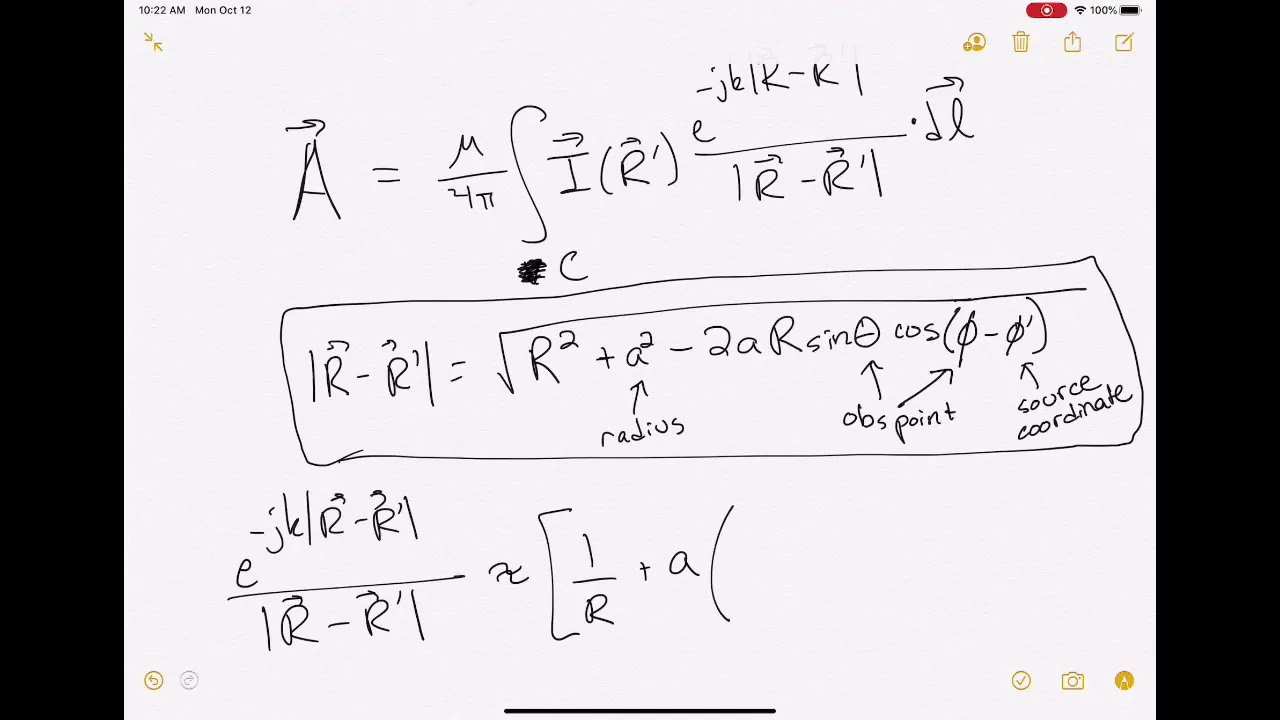 10:22 AM Mon Oct 12
100%
A⃗ = μ/4π ∫_C I⃗(R⃗') e^(-jk|R⃗-R⃗'|)/|R⃗-R⃗'| · dl⃗
|R⃗-R⃗'| = √(R² + a² - 2aR sinθ cos(ϕ-ϕ'))
radius
obs point
source
coordinate
e^(-jk|R⃗-R⃗'|)/|R⃗-R⃗'| ≈ [1/R + a(